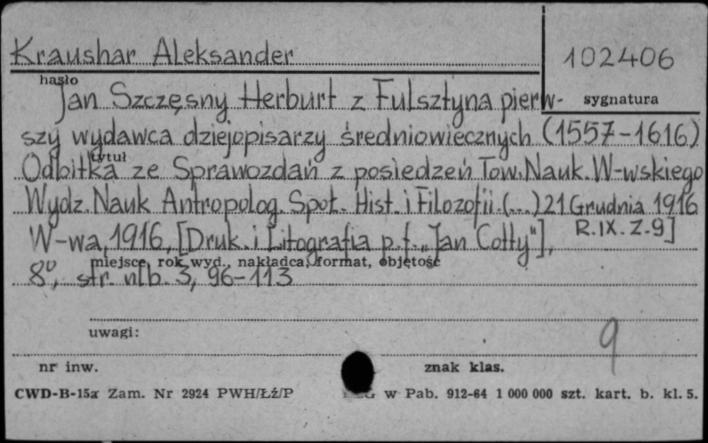 Kraushar Aleksander
102406
hasło
sygnatura
Jan Szczęsny Herburt z Fulsztyna pierw-
szy wydawca dziejopisarzy średniowiecznych (1557-1616)
tytuł
Odbitka ze Sprawozdań z posiedzeń Tow. Nauk. W-wskiego
Wydz. Nauk Antropolog. Społ. Hist. i Filozofii (...) 21 Grudnia 1916
W-wa, 1916, [Druk. i Litografia p.f. „Jan Cotty"], R.IX. Z.9]
miejsce, rok wyd., nakładca, format, objętość
8°, str. nlb. 3, 96-113
uwagi:
9
nr inw.
znak klas.
CWD-B-15a Zam. Nr 2924 PWH/Łź/P
w Pab. 912-64 1 000 000 szt. kart. b. kl. 5.